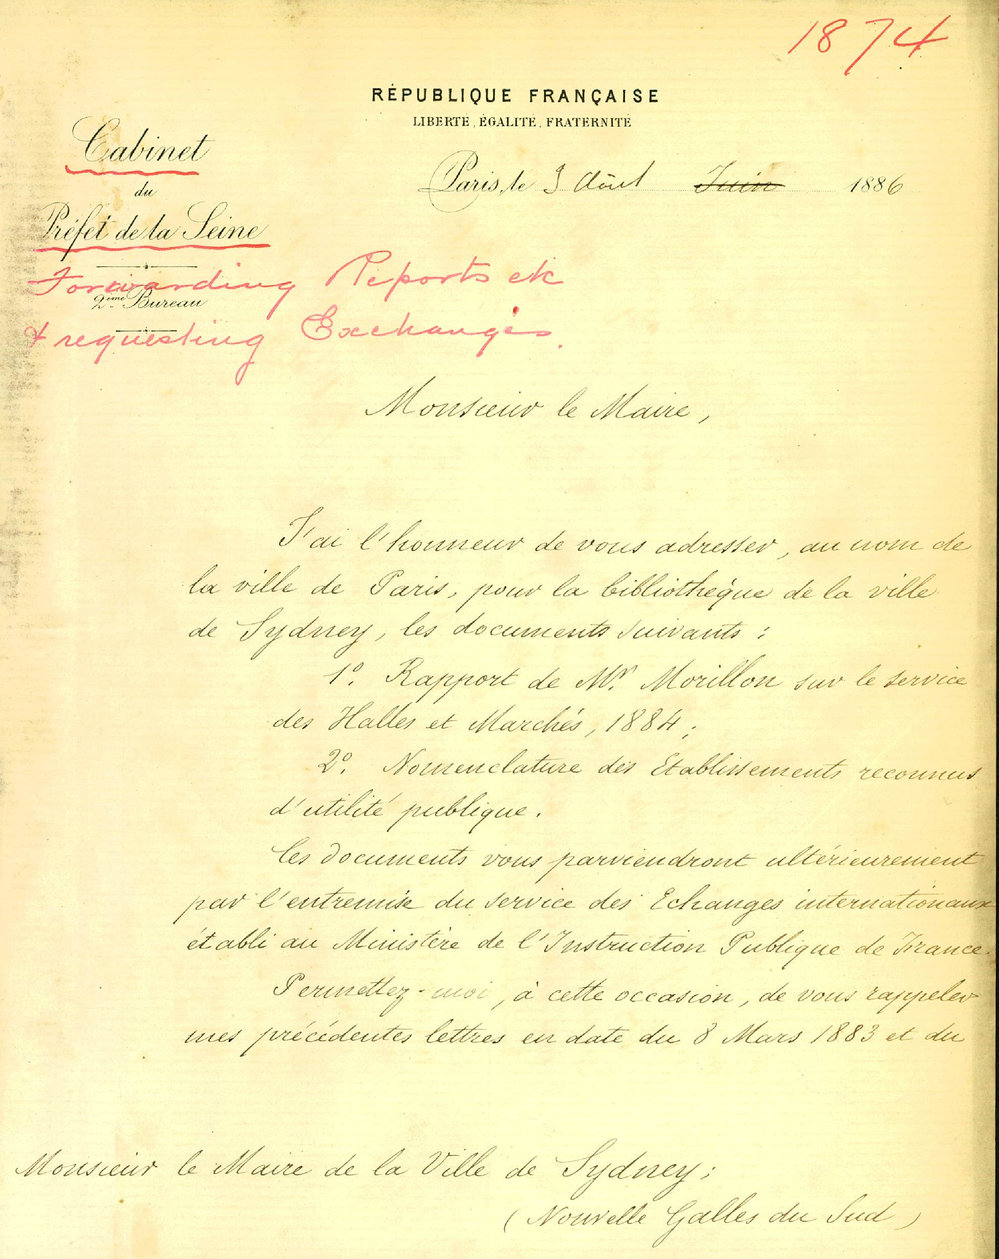 1874
RÉPUBLIQUE FRANÇAISE
LIBERTÉ, ÉGALITÉ, FRATERNITÉ
Cabinet
du
Préfet de la Seine
Paris, le 3 Août Juin 1886
Forwarding Reports etc
2ème Bureau
& requesting Exchanges.
Monsieur le Maire,
J'ai l'honneur de vous adresser, au nom de
la ville de Paris, pour la bibliothèque de la ville
de Sydney, les documents suivants :
1º. Rapport de Mr. Morillon sur le service
des Halles et Marchés, 1884 ;
2º. Nomenclature des Etablissements reconnus
d'utilité publique.
Ces documents vous parviendront ultérieurement
par l'entremise du service des Echanges internationaux
établi au Ministère de l'Instruction Publique de France.
Permettez-moi, à cette occasion, de vous rappeler
mes précédentes lettres en date du 8 Mars 1883 et du
Monsieur le Maire de la Ville de Sydney ;
(Nouvelle Galles du Sud)